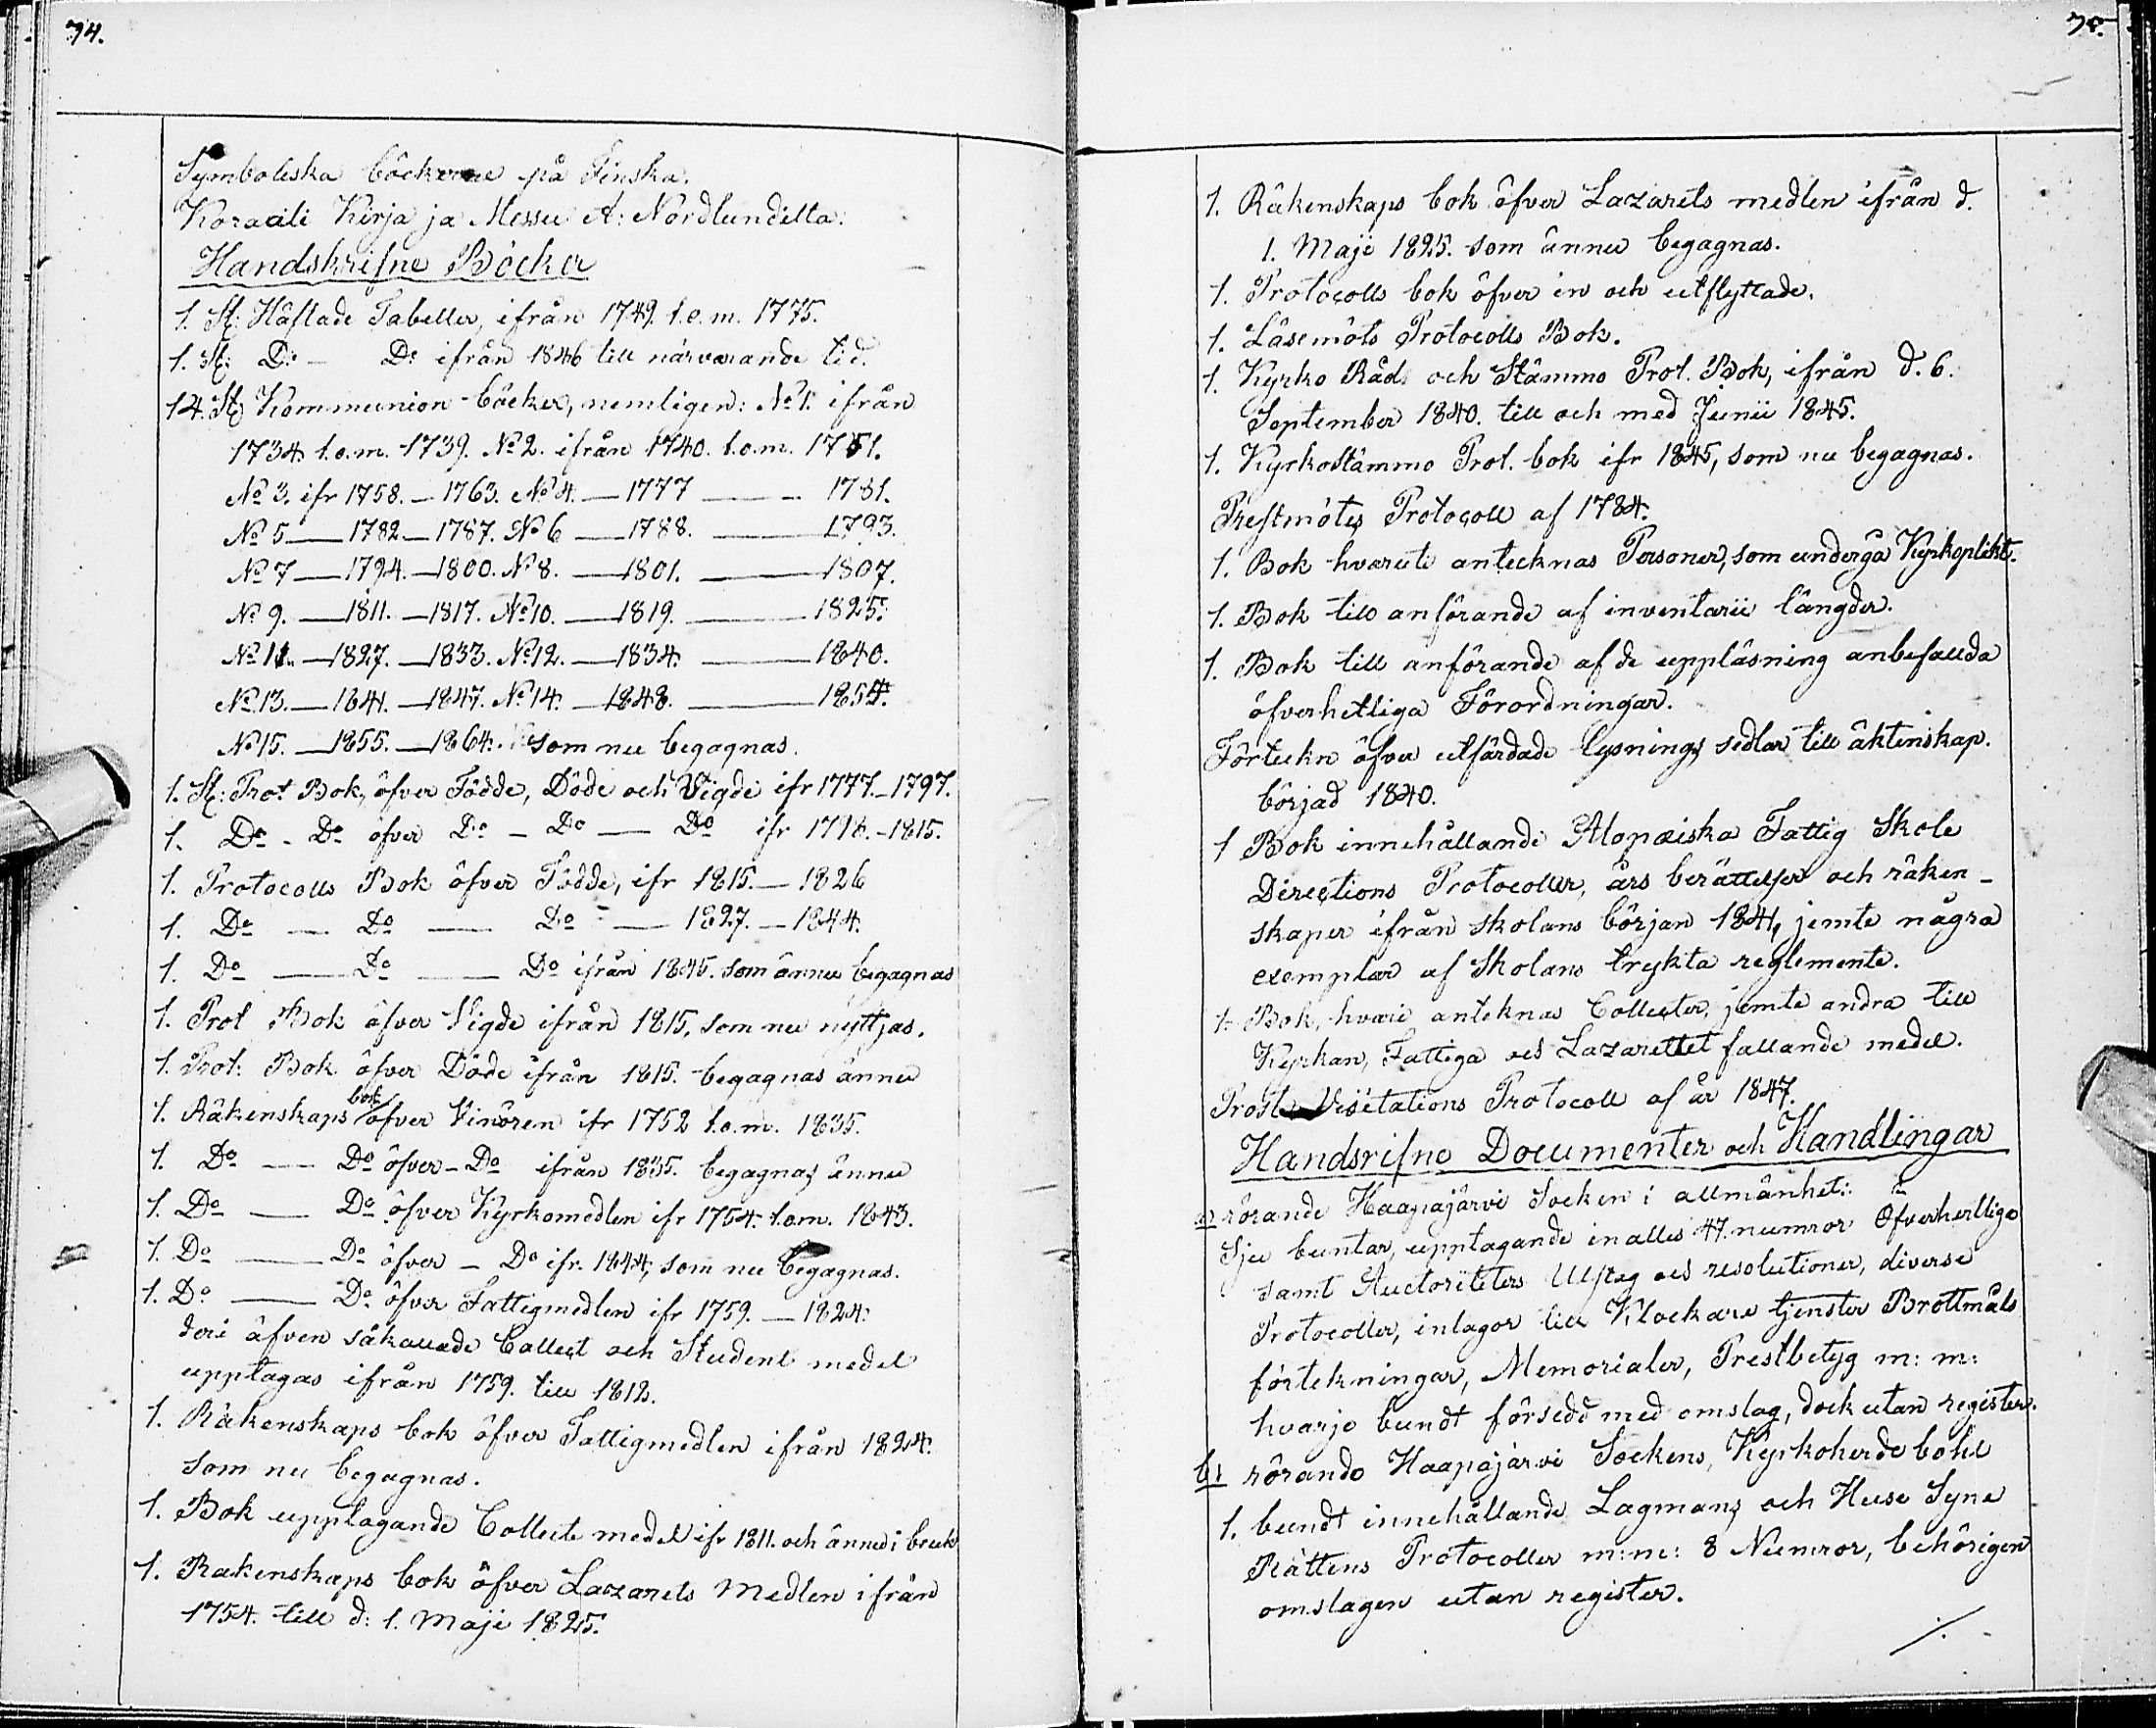 74.
Symboliska böckerne på Finska.
Koraali Kirja ja Messu A: Nordlundilta:
Handskrifne Böcker
1. St: Häftade Tabeller, ifrån 1749. t.o.m. 1775.
1. St: Do - Do ifrån 1846 till närvarande tid.
14. St Kommunion-böcker, nemligen: No 1. ifrån
1734 t.o.m. 1739. No 2. ifrån 1740. t.o.m. 1751.
No 3. ifr 1758. — 1763. No 4. — 1777 — 1781.
No 5 — 1782 — 1787. No 6 — 1788. — 1793.
No 7 — 1794. — 1800. No 8. — 1801. — 1807.
No 9. — 1811. — 1817. No 10. — 1819. — 1825.
No 11. — 1827. — 1833. No 12. — 1834. — 1840.
No 13. — 1841. — 1847. No 14. — 1848. — 1854.
No 15. — 1855. — 1864. som nu begagnas.
1. St: Prot Bok, öfver Födde, Döde och Vigde ifr 1777. - 1797.
1. Do - Do öfver Do - Do — Do ifr 1798. - 1815.
1. Protocolls Bok öfver Födde, ifr 1815. — 1826
1. Do — Do — Do — 1827. — 1844.
1. Do — Do — Do ifrån 1845. som ännu begagnas
1. Prot Bok öfver Vigde ifrån 1815, som nu nyttjas.
1. Prot: Bok öfver Döde ifrån 1815. begagnas ännu
1. Räkenskaps bok öfver Vinören ifr 1752 t.o.m. 1835.
1. Do — Do öfver - Do ifrån 1835. begagnas ännu
1. Do — Do öfver Kyrkomedlen ifr 1754. t.o.m. 1843.
1. Do — Do öfver - Do ifr. 1844, som nu begagnas.
1. Do — Do öfver Fattigmedlen ifr 1759. — 1824.
deri äfven såkallade Collect och Student medel
upptagas ifrån 1759. till 1812.
1. Räkenskaps bok öfver Fattigmedlen ifrån 1824.
som nu begagnas.
1. Bok upptagande Collecte medel ifr 1811. och ännu i bruk
1. Räkenskaps bok öfver Lazarets Medlen ifrån
1754. till d: 1. Maji 1825.
75.
1. Räkenskaps bok öfver Lazarets medlen ifrån d.
1. Maji 1825. som ännu begagnas.
1. Protocolls bok öfver in och utflyttade.
1. Läsemöts Protocolls Bok.
1. Kyrko Råds och Stämmo Prot. Bok, ifrån d. 6.
September 1840. till och med Junii 1845.
1. Kyrkostämmo Prot. bok ifr 1845, som nu begagnas.
Prestmötes Protocoll af 1784.
1. Bok hvaruti antecknas Personer, som undergå Kyrkoplikt.
1. Bok till anförande af inventarii längder.
1. Bok till anförande af de uppläsning anbefallda
öfverhetliga Förordningar.
Förteckn öfver utfärdade lysnings sedlar till äktenskap.
börjad 1840.
1 Bok innehållande Alopæiska Fattig Skole
Directions Protocoller, års berättelser och räken-
skaper ifrån skolans början 1841, jemte några
exemplar af Skolans trykta reglemente.
1. Bok, hvari anteknas Collecter, jemte andra till
Kyrkan, Fattiga och Lazarettet fallande medel.
Prosts Visitations Protocoll af år 1847.
Handsrifne Documenter och Handlingar
a) rörande Haapajärvi Socken i allmänhet:
Sju buntar, upptagande inalles 47. numror Öfverhetlige
samt Auctoriteters Utslag och resolutioner, diverse
Protocoller, inlagor till Klockare tjenster Brottmåls
förtekningar, Memorialer, Prestbetyg m: m:
hvarje bundt försedd med omslag, dock utan register.
b) rörande Haapajärvi Sockens, Kyrkoherde bohl
1. bundt innehållande Lagmans och Huse Syne
Rättens Protocoller m:m: 8 Numror, behörigen
omslagen utan register.